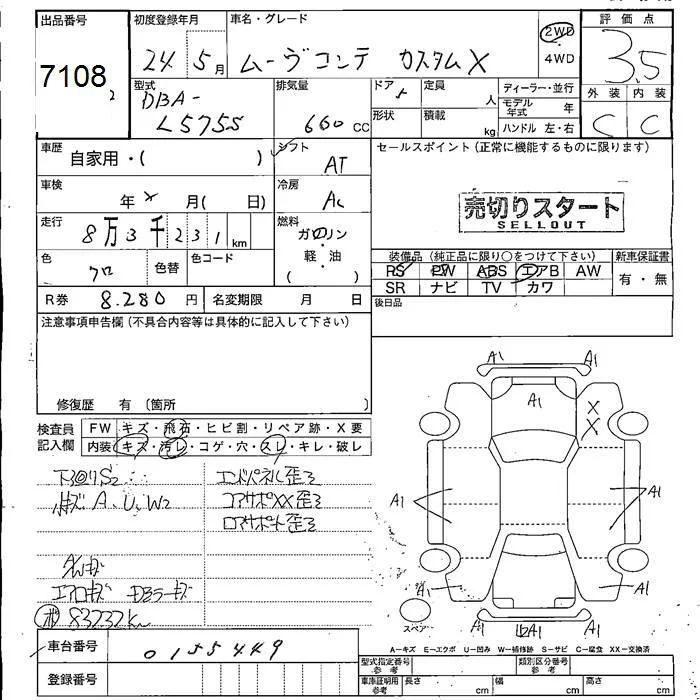 出品番号 初度登録年月 車名・グレード 評価点
7108 2
24 5月 ムーヴコンテ カスタムX 2WD・4WD 3.5
型式 排気量 ドア 定員 ディーラー・並行 外装 内装
DBA-L575S 660 cc 5 人 モデル年式 年 C C
形状 積載 kg ハンドル 左・右
車歴 自家用・( ) シフト AT セールスポイント(正常に機能するものに限ります)
車検 年 月( 日) 冷房 AC
売切りスタート
SELLOUT
走行 8万3千231km 燃料 ガソリン・軽・油 ( )
装備品(純正品に限り○をつけて下さい) 新車保証書
PS PW ABS エアB AW 有・無
SR ナビ TV カワ
色 クロ 色替 色コード
R券 8.280円 名変期限 月 日 後日品
注意事項申告欄(不具合内容等は具体的に記入して下さい)
修復歴 有 〔箇所 〕
検査員記入欄 FW キズ・飛石・ヒビ割・リペア跡・X要
内装 キズ・汚レ・コゲ・穴・スレ・キレ・破レ
下回りS2 エンドパネル歪ミ
A、U、W2 コアサポXX歪ミ
ロアサポート歪ミ
エアロキズ
83232km
車台番号 0155449
登録番号
A1 A1
A1
X
X
A1 A1
A1 A1
A1 A1
スペアー
A-キズ E-エクボ U-凹み W-補修跡 S-サビ C-腐食 XX-交換済
型式指定番号 参考 類別区分番号 参考
車庫証明用 参考 長さ cm 幅 cm 高さ cm